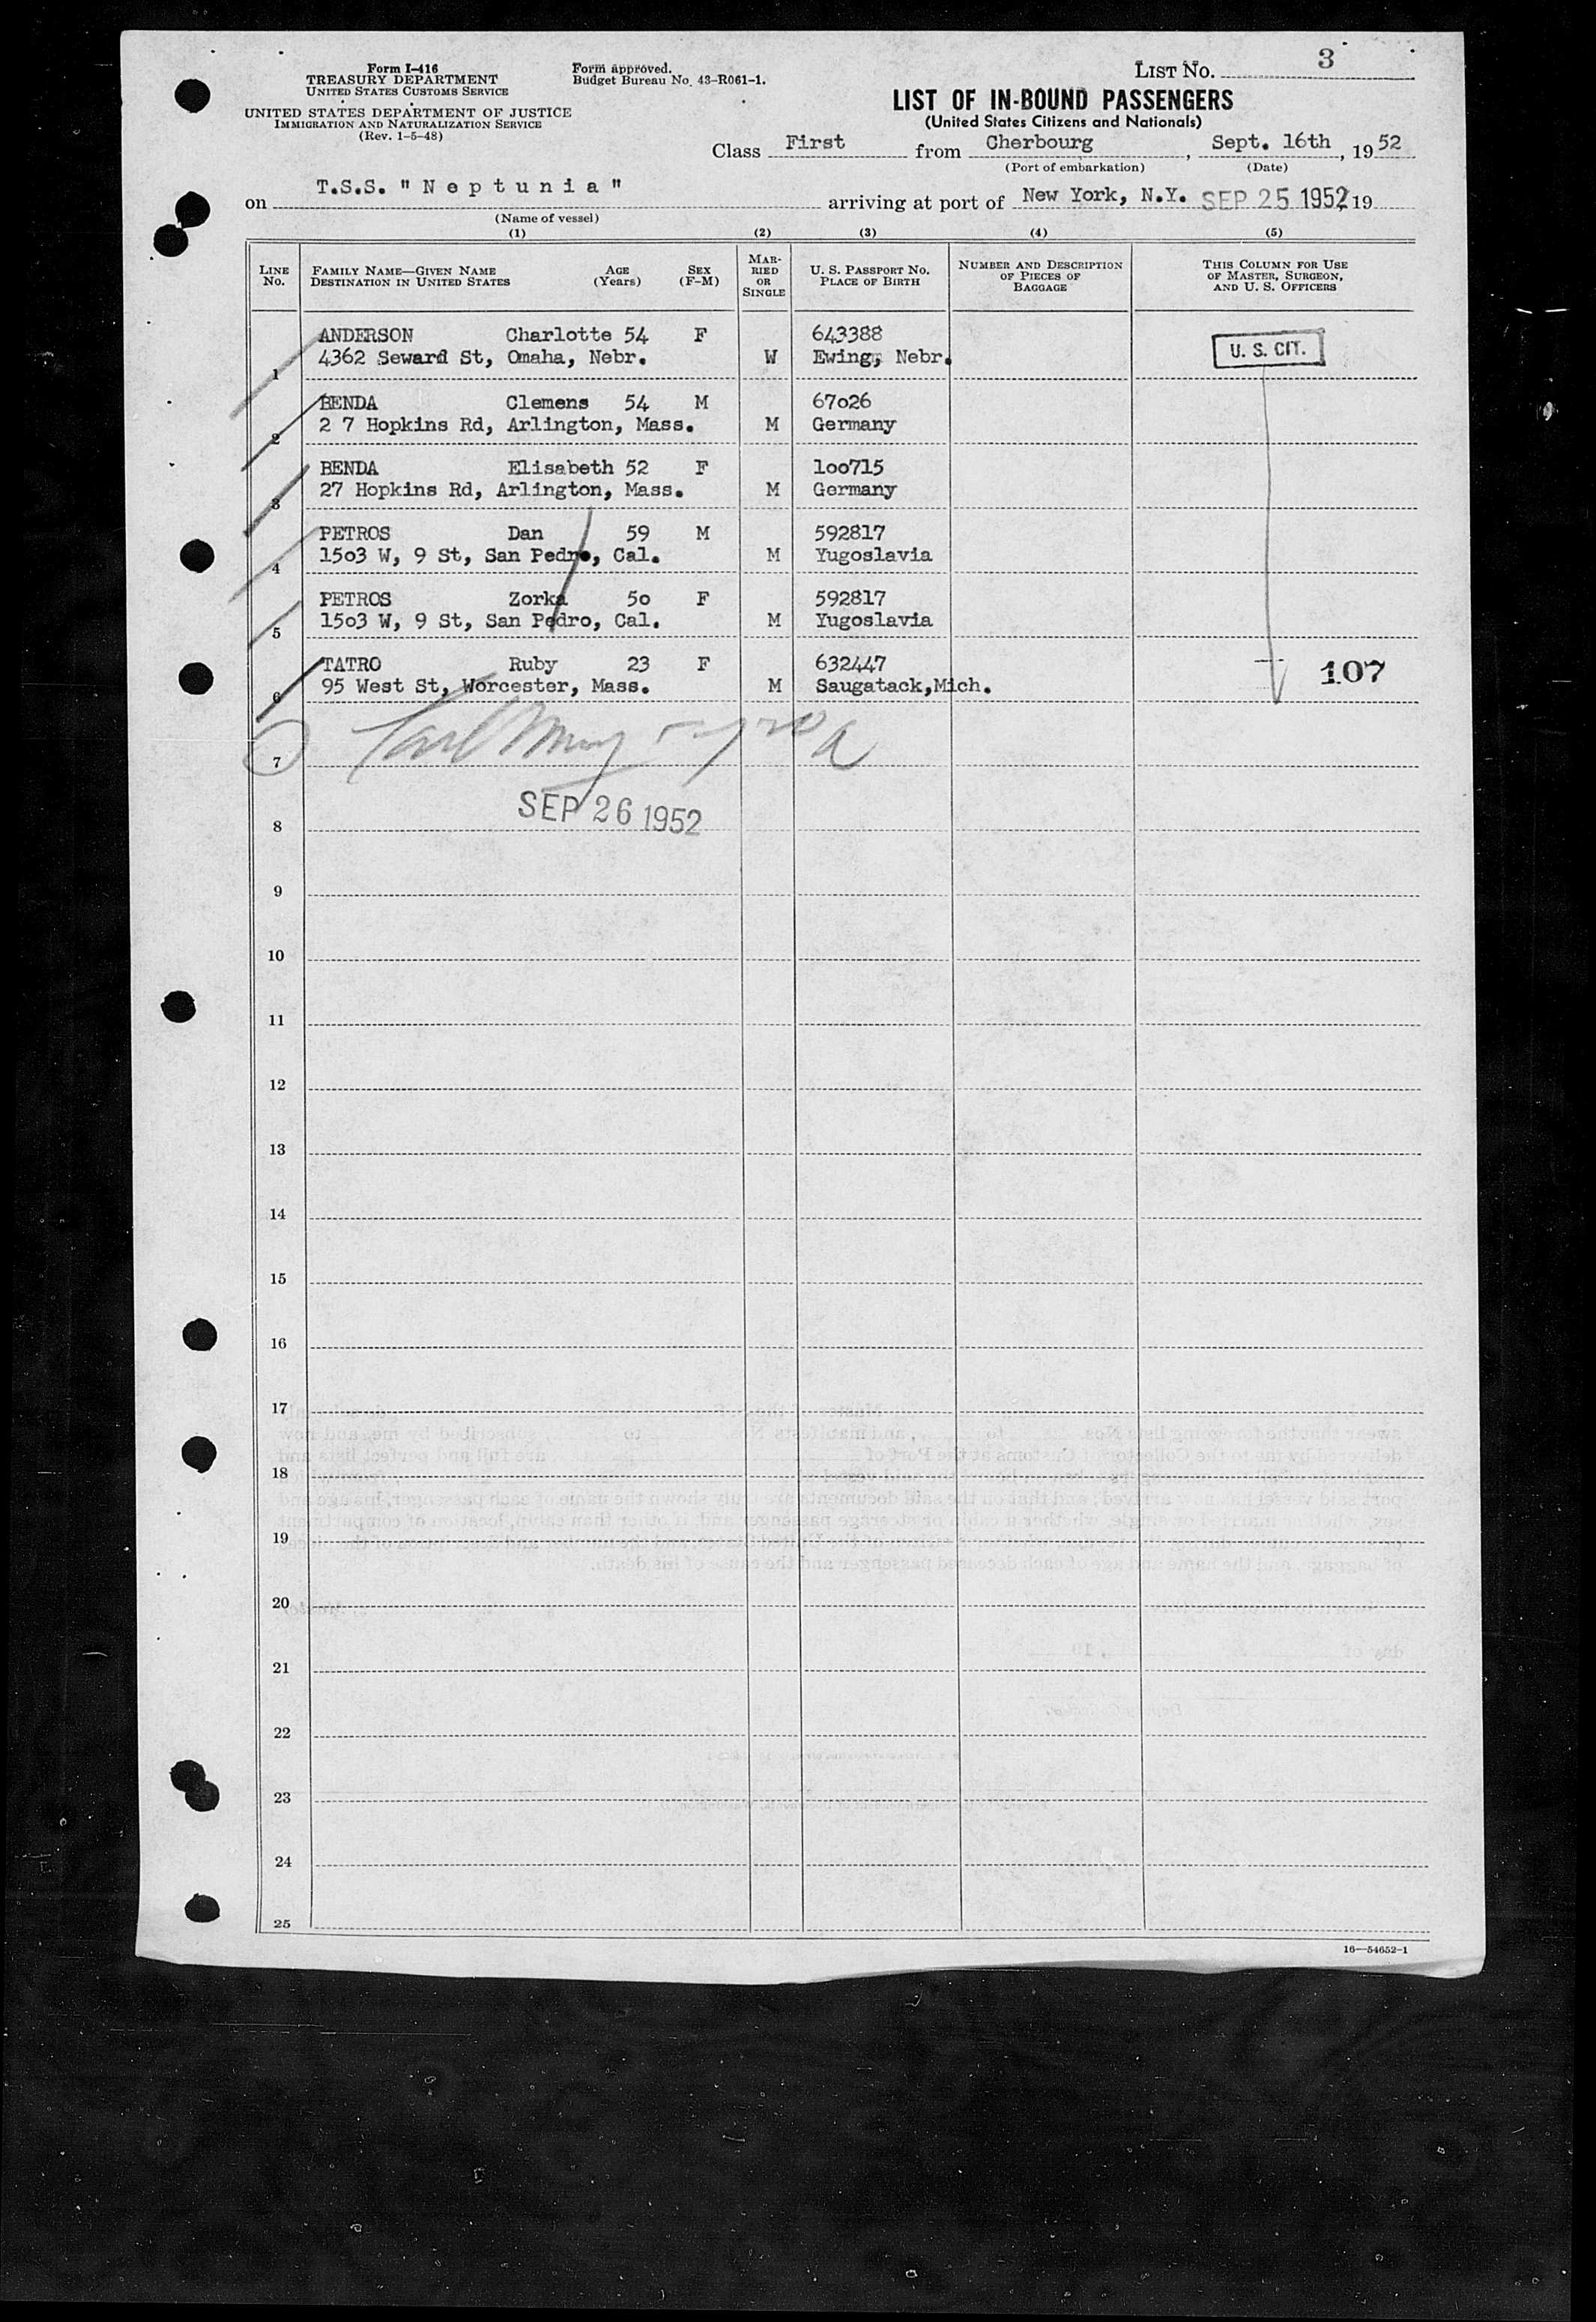 Form I-416
TREASURY DEPARTMENT
UNITED STATES CUSTOMS SERVICE
UNITED STATES DEPARTMENT OF JUSTICE
IMMIGRATION AND NATURALIZATION SERVICE
(Rev. 1-5-48)
Form approved.
Budget Bureau No. 43-R061-1.
LIST NO. 3
LIST OF IN-BOUND PASSENGERS
(United States Citizens and Nationals)
Class First from Cherbourg, Sept. 16th, 1952
(Port of embarkation) (Date)
on T.S.S. "Neptunia" arriving at port of New York, N.Y. SEP 25 1952 19
(Name of vessel)
(1) (2) (3) (4) (5)
LINE NO.
FAMILY NAME—GIVEN NAME
DESTINATION IN UNITED STATES
AGE (Years)
SEX (F-M)
MARRIED OR SINGLE
U. S. PASSPORT NO.
PLACE OF BIRTH
NUMBER AND DESCRIPTION OF PIECES OF BAGGAGE
THIS COLUMN FOR USE OF MASTER, SURGEON, AND U. S. OFFICERS
ANDERSON Charlotte 54 F 643388
1 4362 Seward St, Omaha, Nebr. W Ewing, Nebr. U. S. CIT.
BENDA Clemens 54 M 67o26
2 2 7 Hopkins Rd, Arlington, Mass. M Germany
BENDA Elisabeth 52 F 1oo715
3 27 Hopkins Rd, Arlington, Mass. M Germany
PETROS Dan 59 M 592817
4 15o3 W, 9 St, San Pedro, Cal. M Yugoslavia
PETROS Zorka 5o F 592817
5 15o3 W, 9 St, San Pedro, Cal. M Yugoslavia
TATRO Ruby 23 F 632447
6 95 West St, Worcester, Mass. M Saugatack,Mich. 107
7
SEP 26 1952
8
9
10
11
12
13
14
15
16
17
18
19
20
21
22
23
24
25
16—54652-1